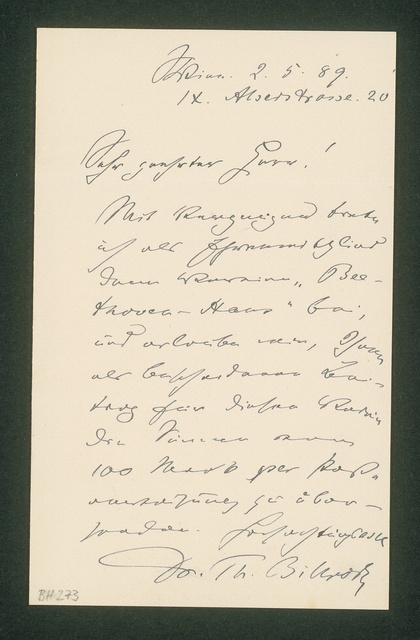 Wien. 2. 5. 89.
IX. Alserstrasse. 20
Sehr geehrter Herr!
Mit Vergnügen trete
ich als Ehrenmitglied
dem Vereine „Bee-
thoven-Haus" bei,
und erlaube mir, Ihnen
als bescheidenen Bei-
trag für diesen Verein
die Summe von
100 Mark per Post-
anweisung zu über-
senden. Hochachtungsvoll
Dr. Th. Billroth
BH 273